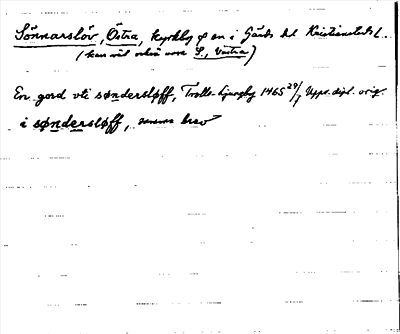 Sönnarslöv, Östra, kyrkby o en i Gärds hd Kristianstads l.
(kan väl också vara S., Västra)
En gord vti søndersløff, Trolle-Ljungby 1465 29/7 Upps. dipl. orig.
i søndersløff, samma brev